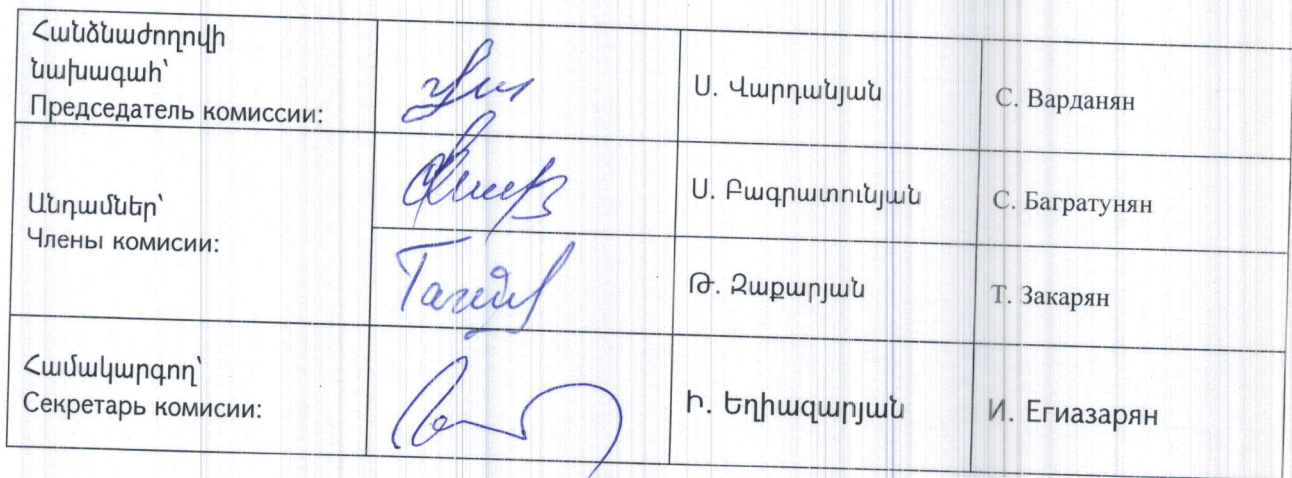 Հանձնաժողովի
նախագահ՝
Председатель комиссии:
Ս. Վարդանյան
С. Варданян
Անդամներ՝
Члены комисии:
Ս. Բագրատունյան
С. Багратунян
Թ. Զաքարյան
Т. Закарян
Համակարգող՝
Секретарь комисии:
Ի. Եղիազարյան
И. Егиазарян